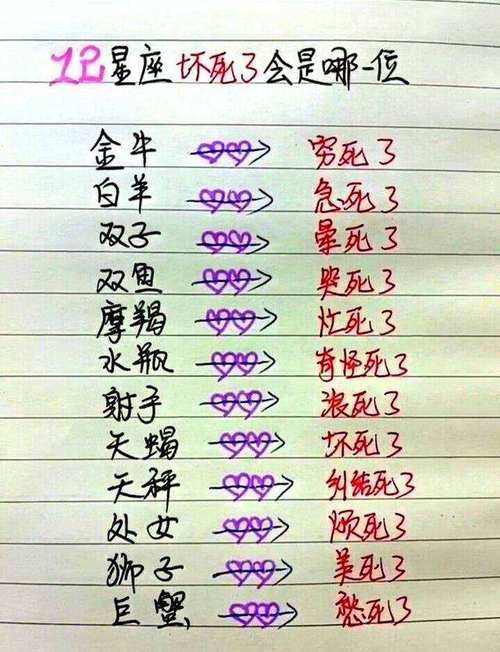 12星座坏死了会是哪一位
金牛 穷死了
白羊 急死了
双子 晕死了
双鱼 哭死了
摩羯 忙死了
水瓶 奇怪死了
射手 浪死了
天蝎 坏死了
天秤 纠结死了
处女 烦死了
狮子 美死了
巨蟹 愁死了